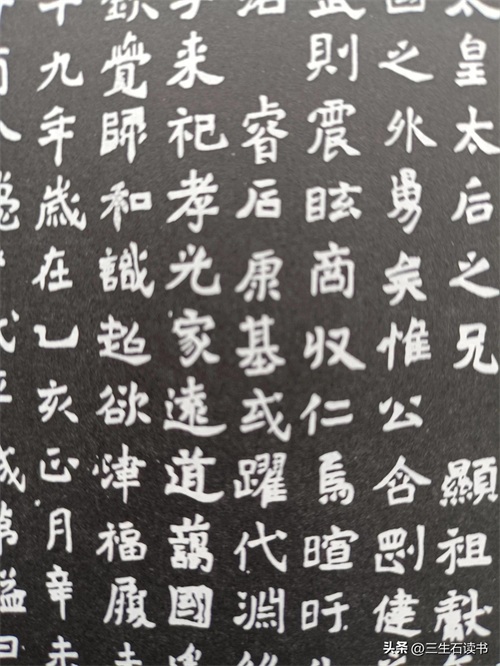 太皇太后之兄 顯祖獻
國之外勇矣惟公含劉健
武則震眩商收仁焉暄旴
睿后康基或躍代淵
子来祀孝光家遠道蔼國
欽覺師和識超欲津福履
十九年歲在乙亥正月辛未
代
头条 @三生石读书